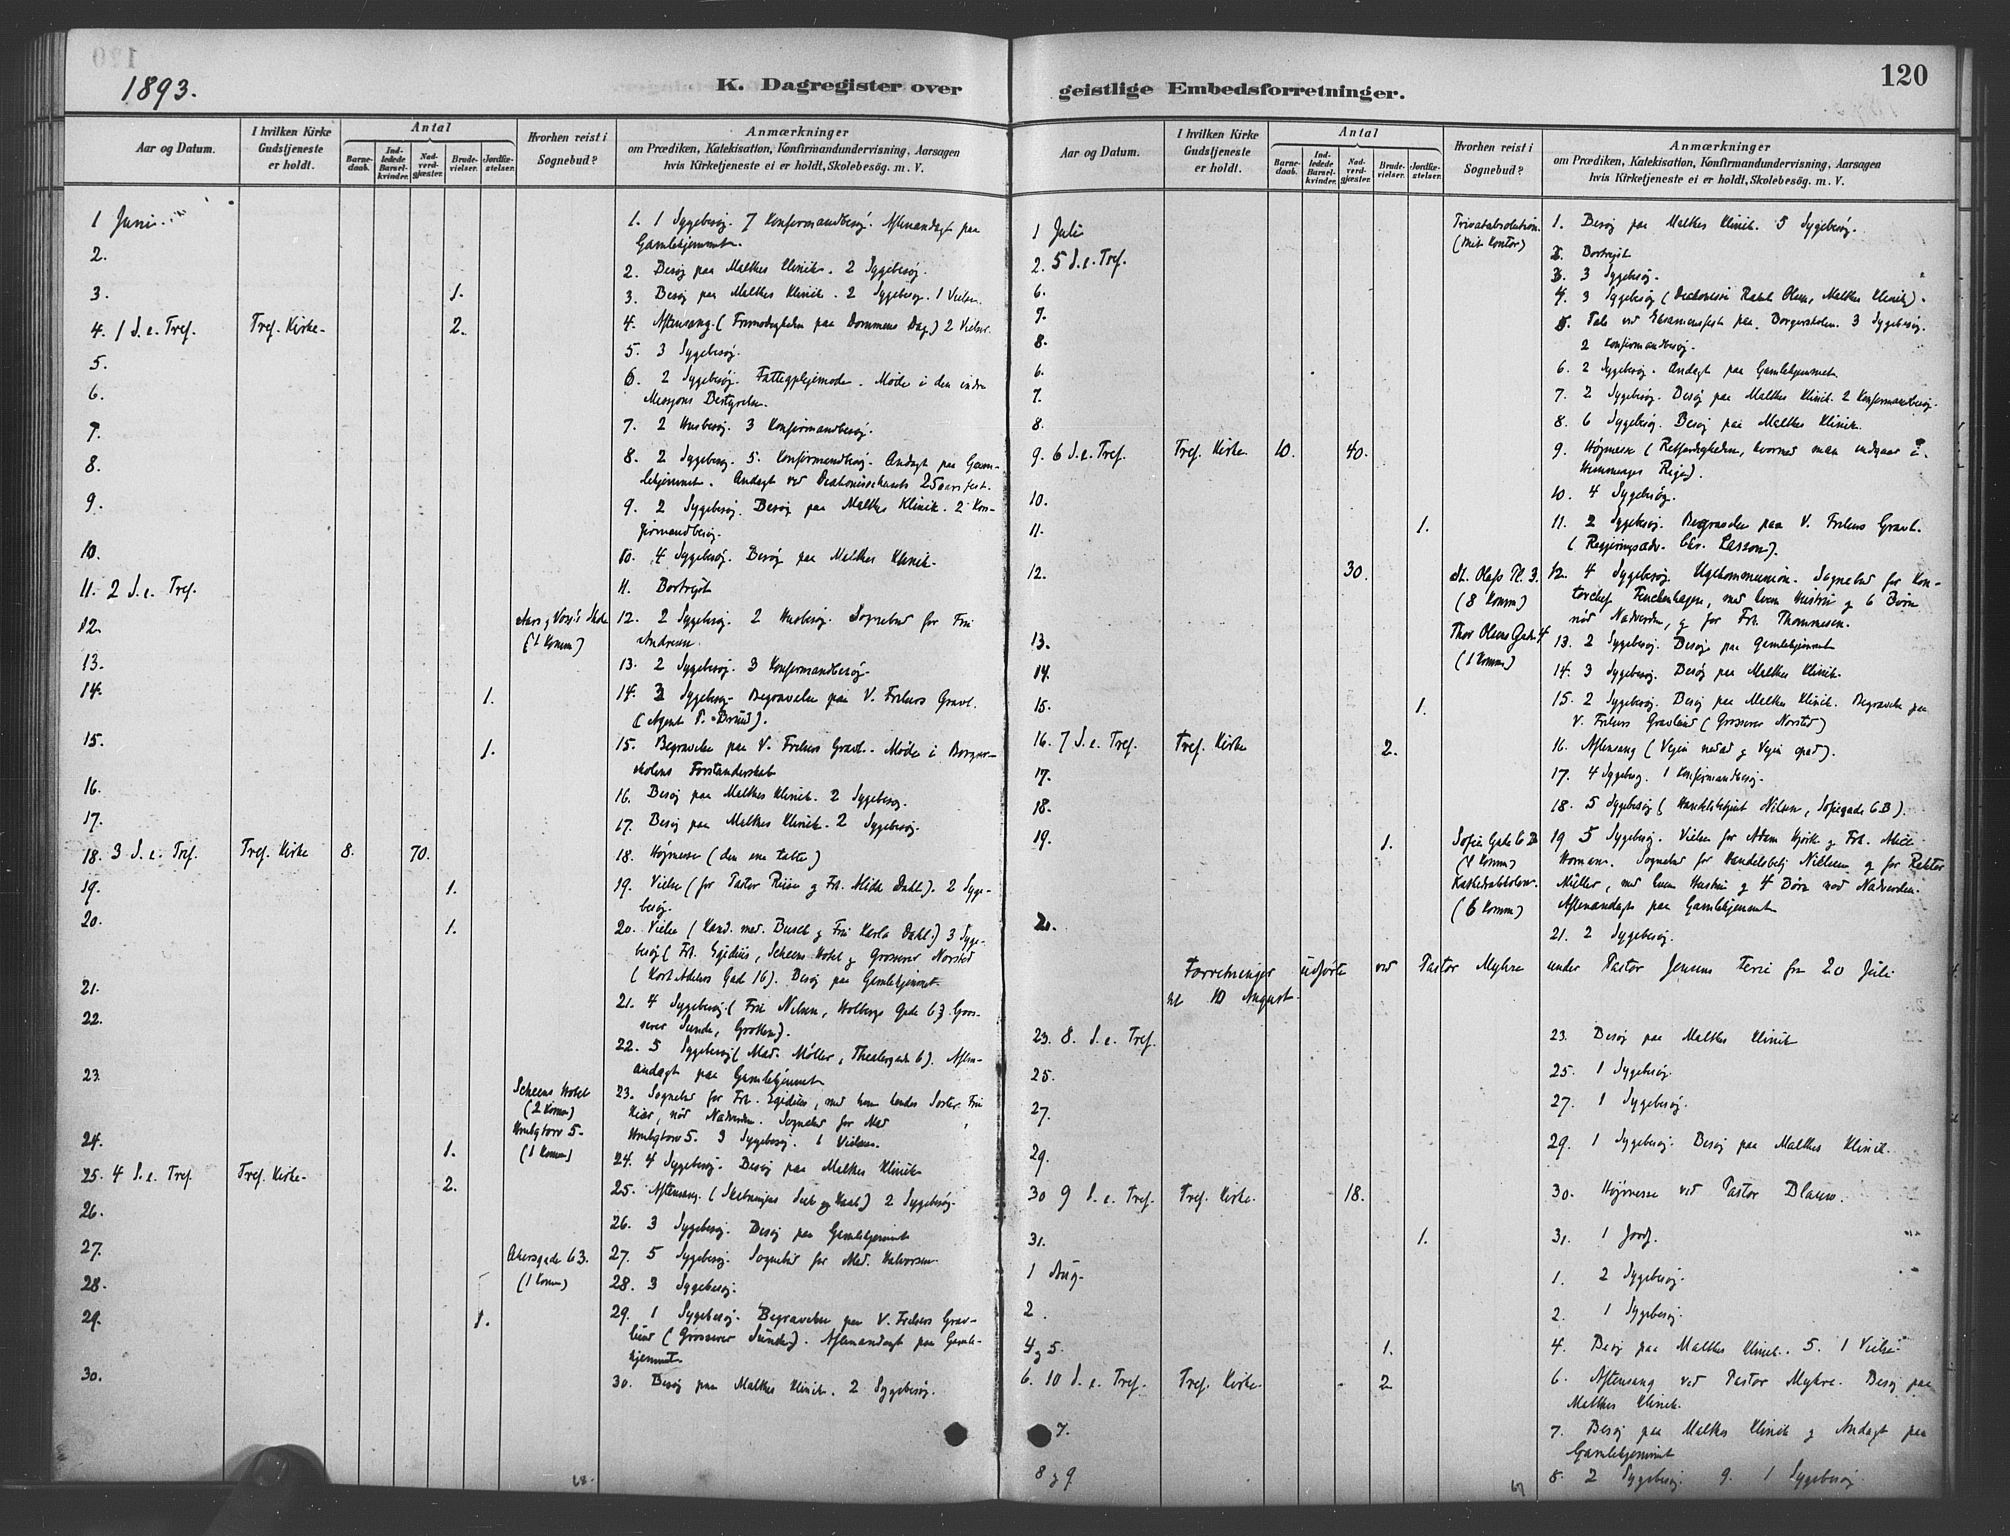 120
1893.
K. Dagregister over
Aar og Datum.
I hvilken Kirke Gudstjeneste er holdt.
Antal
Barnedaab.
Indledede Barselkvinder.
Nadverdgjæster.
Brudevielser.
Jordfæstelser.
Hvorhen reist i Sognebud?
Anmærkninger
om Prædiken, Katekisation, Konfirmandundervisning, Aarsagen
hvis Kirketjeneste ei er holdt, Skolebesøg. m. V.
1 Juni 1. 1 Sygebesøg. 7 Konfirmandbesøg. Aftenandagt paa
Gamlehjemmet.
2. 2. Besøg paa Malthes Klinik. 2 Sygebesøg.
3. 1. 3. Besøg paa Malthes Klinik. 2 Sygebesøg. 1 Vielse.
4. 1 S. e. Tref. Tref. Kirke. 2. 4. Aftensang. (Frimodigheden paa Dommens Dag) 2 Vielser.
5. 5. 3 Sygebesøg.
6. 6. 2 Sygebesøg. Fattigplejemøde. Møde i den indre
Missions Bestyrelse.
7. 7. 2 Husbesøg. 3 Konfirmandbesøg.
8. 8. 2 Sygebesøg. 5 Konfirmandbesøg. Andagt paa Gam-
lehjemmet. Andagt ved Diakonissehusets 25 aars fest.
9. 9. 2 Sygebesøg. Besøg paa Malthes Klinik. 2 Kon-
firmandbesøg.
10. 10. 4 Sygebesøg. Besøg paa Malthes Klinik.
11. 2 S. e. Tref. 11. Bortrejst
12. (1 Komm) 12. 2 Sygebesøg. 2 Husbesøg. Sognebud for Fru
Andresen.
13. 13. 2 Sygebesøg. 3 Konfirmandbesøg.
14. 1. 14. 3 Sygebesøg. Begravelse paa V. Frelsers Gravl.
(Agent P. Bruud).
15. 1. 15. Begravelse paa V. Frelsers Gravl. Møde i Borger-
skolens Forstanderskab
16. 16. Besøg paa Malthes Klinik. 2 Sygebesøg.
17. 17. Besøg paa Malthes Klinik. 2 Sygebesøg.
18. 3 S. e. Tref. Tref. Kirke 8. 70. 18. Højmesse (den ene tabte)
19. 1. 19. Vielse (for Pastor Riise og Frk. Dahl). 2 Syge-
besøg.
20. 1. 20. Vielse (Kand. med. Busch og Fru Karla Dahl.) 3 Syge-
besøg (Frk. Egidius, Scheens Hotel og Grosserer Norsted
(Kort Adelers Gad 16). Besøg paa Gamlehjemmet.
21. 21. 4 Sygebesøg. (Fru Nilsen, Holbergs Gade 63. Gros-
serer Sunde, Grotten).
22. 22. 5 Sygebesøg (Mad. Møller, Theatergade 6). Aften-
andagt paa Gamlehjemmet
23. Scheens Hotel (2 Komm) 5. (1 Komm) 23. Sognebud for Frk. Egidius, med hvem hendes Søster Fru
Kiær, nød Nadverden. Sognebud for Mad
5. 3 Sygebesøg. 1 Vielse.
24. 1. 24. 4 Sygebesøg. Besøg paa Malthes Klinik
25. 4 S. e. Tref Tref. Kirke. 2. 25. Aftensang. 2 Sygebesøg.
26. 26. 3 Sygebesøg. Besøg paa Gamlehjemmet
27. Akersgade 63. (1 Komm) 27. 5 Sygebesøg. Sognebud for Mad. Halvorsen
28. 28. 3 Sygebesøg.
29. 1. 29. 1 Sygebesøg. Begravelse paa V. Frelsers Grav-
lund (Grosserer Sunde). Aftenandagt paa Gamle-
hjemmet
30. 30. Besøg paa Malthes Klinik. 2 Sygebesøg.
68.
120
geistlige Embedsforretninger.
Aar og Datum.
I hvilken Kirke Gudstjeneste er holdt.
Antal
Barnedaab.
Indledede Barselkvinder.
Nadverdgjæster.
Brudevielser.
Jordfæstelser.
Hvorhen reist i Sognebud?
Anmærkninger
om Prædiken, Katekisation, Konfirmandundervisning, Aarsagen
hvis Kirketjeneste ei er holdt, Skolebesøg. m. V.
1 Juli Privatabsolution. (mit Kontor) 1. Besøg paa Malthes Klinik. 5 Sygebesøg.
2. 5 S. e. Tref. 2. Bortrejst
3. 3 Sygebesøg.
6. 4. 3 Sygebesøg (Diakonisse Olsen, Malthes Klinik).
7. 5. Tale ved Eksamensfest paa Borgerskolen. 3 Sygebesøg.
8. 2 Konfirmandbesøg.
6. 6. 2 Sygebesøg. Andagt paa Gamlehjemmet
7. 7. 2 Sygebesøg. Besøg paa Malthes Klinik. 2 Konfirmandbesøg.
8. 8. 6 Sygebesøg. Besøg paa Malthes Klinik.
9. 6 S. e. Tref. Tref. Kirke 10. 40. 9. Højmesse (Retfærdigheden, hvormed man indgaar i
Himmeriges Rige).
10. 10. 4 Sygebesøg.
11. 1. 11. 2 Sygebesøg. Begravelse paa V. Frelsers Gravl.
(Regjeringsadv. Chr. Lasson).
12. 30. St. Olafs Pl. 3. (8 Komm) Thor Olsens Gade 4 (1 Komm) 12. 4 Sygebesøg. Ugekommunion. Sognebud for Kon-
torchef Finckenhagen, med hvem Hustru og 6 Børn
nød Nadverden, og for Frk. Thommesen.
13. 13. 2 Sygebesøg. Besøg paa Gamlehjemmet
14. 14. 3 Sygebesøg. Besøg paa Malthes Klinik.
15. 1. 15. 2 Sygebesøg. Besøg paa Malthes Klinik. Begravelse paa
V. Frelsers Gravlund (Grosserer Norsted)
16. 7 S. e. Tref. Tref. Kirke 2. 16. Aftensang (Vejen nedad og Vejen opad).
17. 17. 4 Sygebesøg. 1 Konfirmandbesøg.
18. 18. 5 Sygebesøg (Handelsbetjent Nilsen, Sofiegade 6B).
19. 1. Sofies Gade 6 B (1 Komm) Kathedralskolen. (6 Komm) 19 5 Sygebesøg. Vielse for Adam Hjorth og Frk. Alice
Homann. Sognebud for Handelsbetj Nilsen og for Rektor
Müller, med hvem Hustru og 4 Børn nød Nadverden.
Aftenandagt paa Gamlehjemmet
20.
21. 2 Sygebesøg.
Forretninger udførte ved Pastor Myhre under Pastor Jensens Ferie fra 20 Juli
til 10 August.
23. 8. S. e. Tref. 23. Besøg paa Malthes Klinik
25. 25. 1 Sygebesøg
27. 27. 1 Sygebesøg.
29. 29. 1 Sygebesøg. Besøg paa Malthes Klinik.
30 9 S. e. Tref. Tref. Kirke. 18. 30. Højmesse ved Pastor Blauw.
31. 1. 31. 1 Jordf.
1 Aug. 1. 2 Sygebesøg.
2. 2. 1 Sygebesøg.
4 og 5. 1. 4. Besøg paa Malthes Klinik. 5. 1 Vielse
6. 10 S. e. Tref. Tref. Kirke. 2 6. Aftensang ved Pastor Myhre. Besøg paa
Malthes Klinik.
7. 7. Besøg paa Malthes Klinik og Andagt paa
Gamlehjemmet
8 og 9 8. 2 Sygebesøg. 9. 1 Sygebesøg.